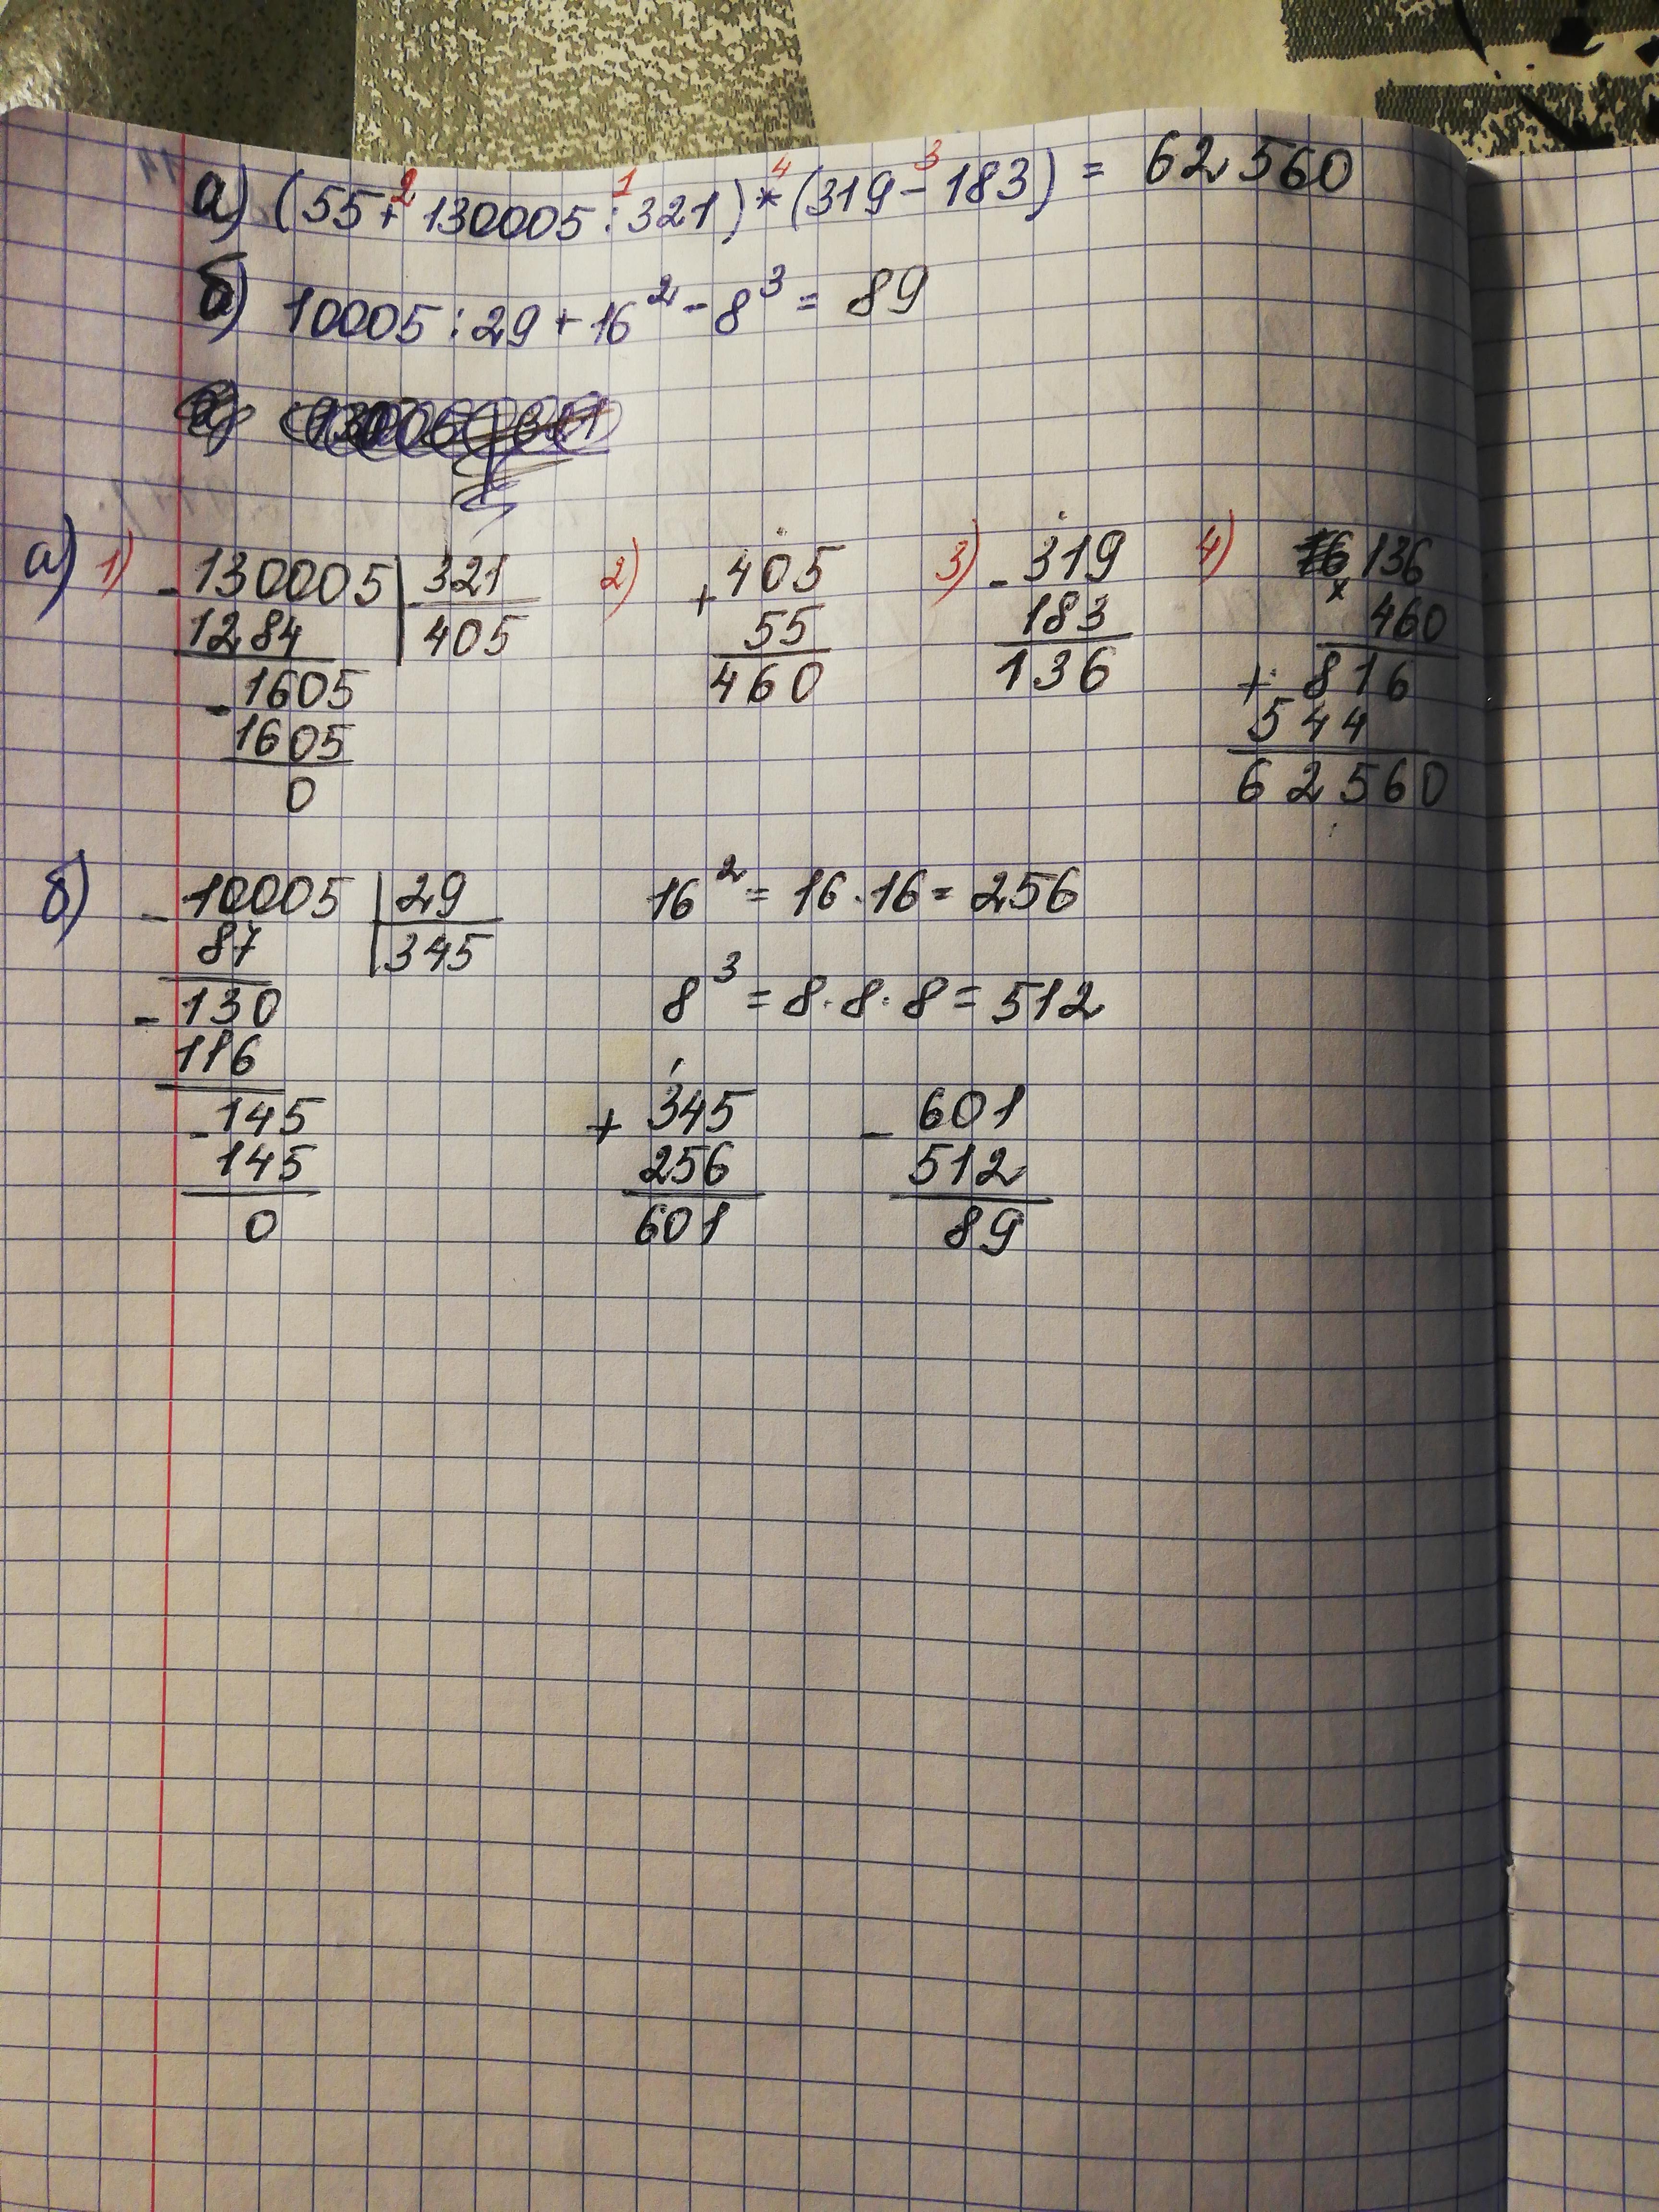 а) (55 + 130005 : 321) * (319 - 183) = 62 560
2 1 4 3
б) 10005 : 29 + 16² - 8³ = 89
а) 1) 2) 3) 4)
- 130005 | 321
1284 | 405
- 1605
1605
0
+ 405
55
460
- 319
183
136
136
× 460
+ 816
544
62560
б)
- 10005 | 29
87 | 345
- 130
116
- 145
145
0
16² = 16 · 16 = 256
8³ = 8 · 8 · 8 = 512
+ 345
256
601
- 601
512
89